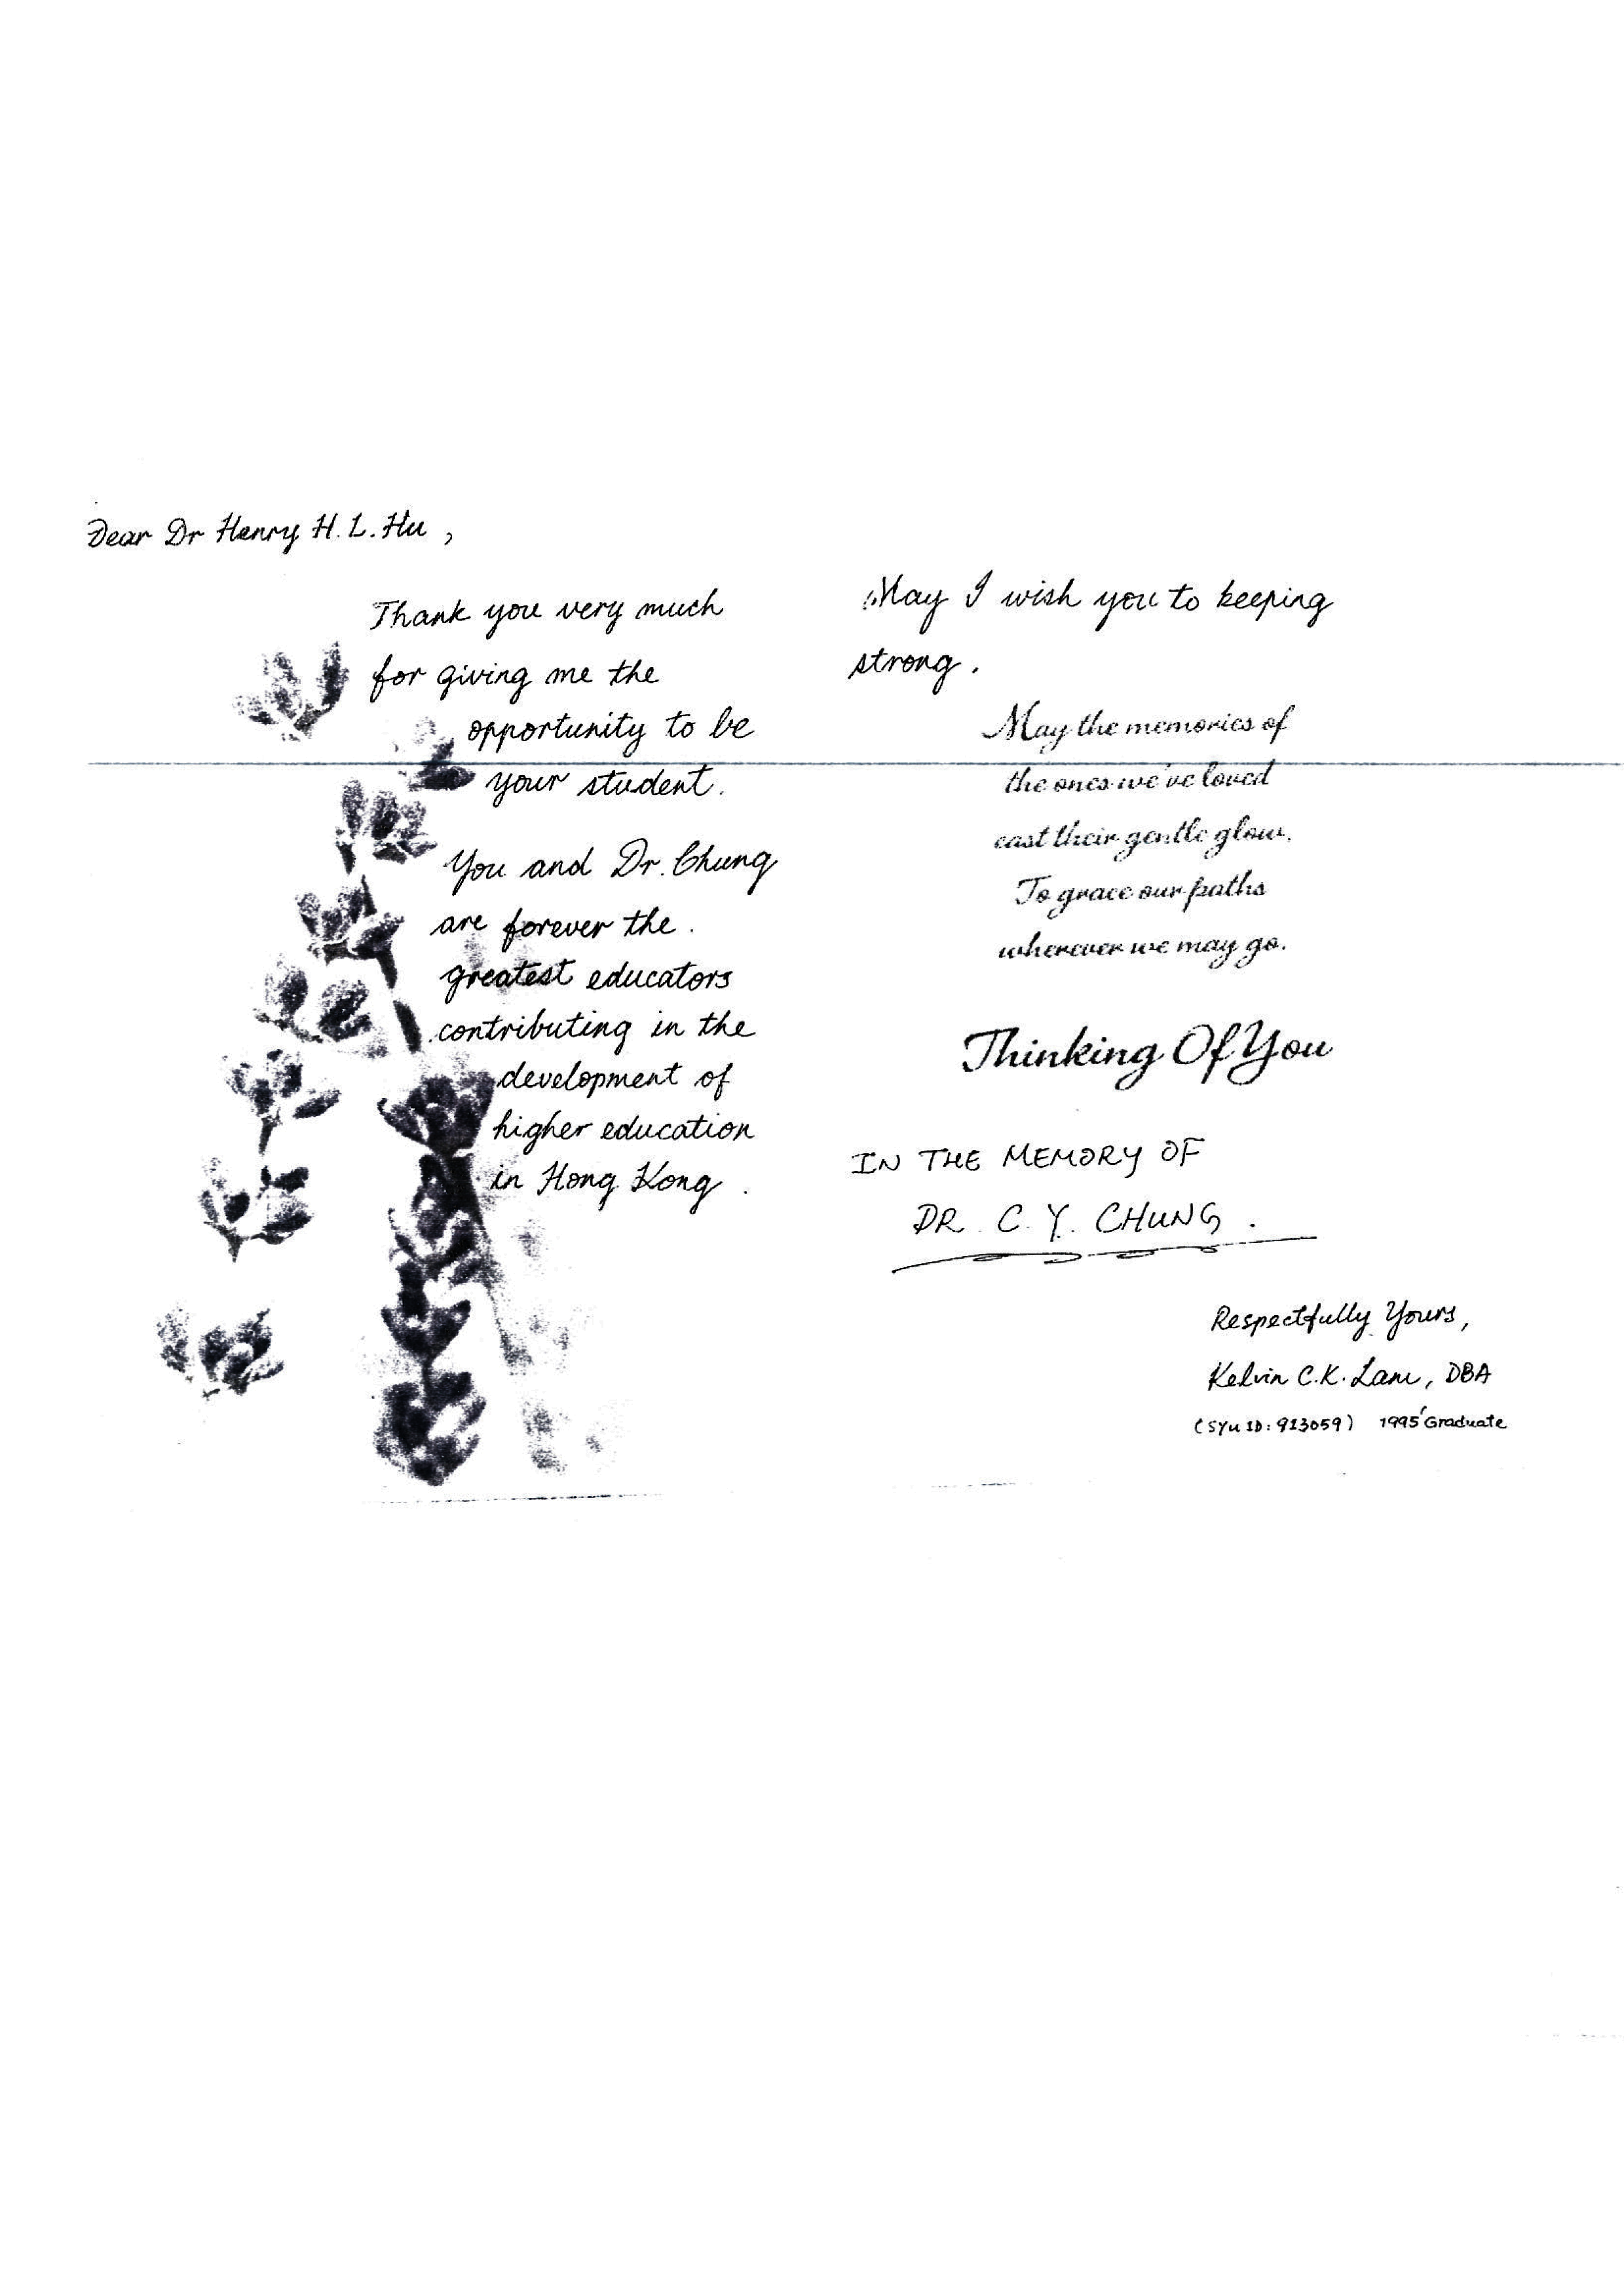 Dear Dr Henry H. L. Hu,
Thank you very much
for giving me the
opportunity to be
your student.
You and Dr. Chung
are forever the.
greatest educators
contributing in the
development of
higher education
in Hong Kong.
May I wish you to keeping
strong.
May the memories of
the ones we've loved
cast their gentle glow,
To grace our paths
wherever we may go.
Thinking Of You
IN THE MEMORY OF
DR. C. Y. CHUNG.
Respectfully Yours,
Kelvin C.K. Lam, DBA
(SYU ID: 913059) 1995' Graduate